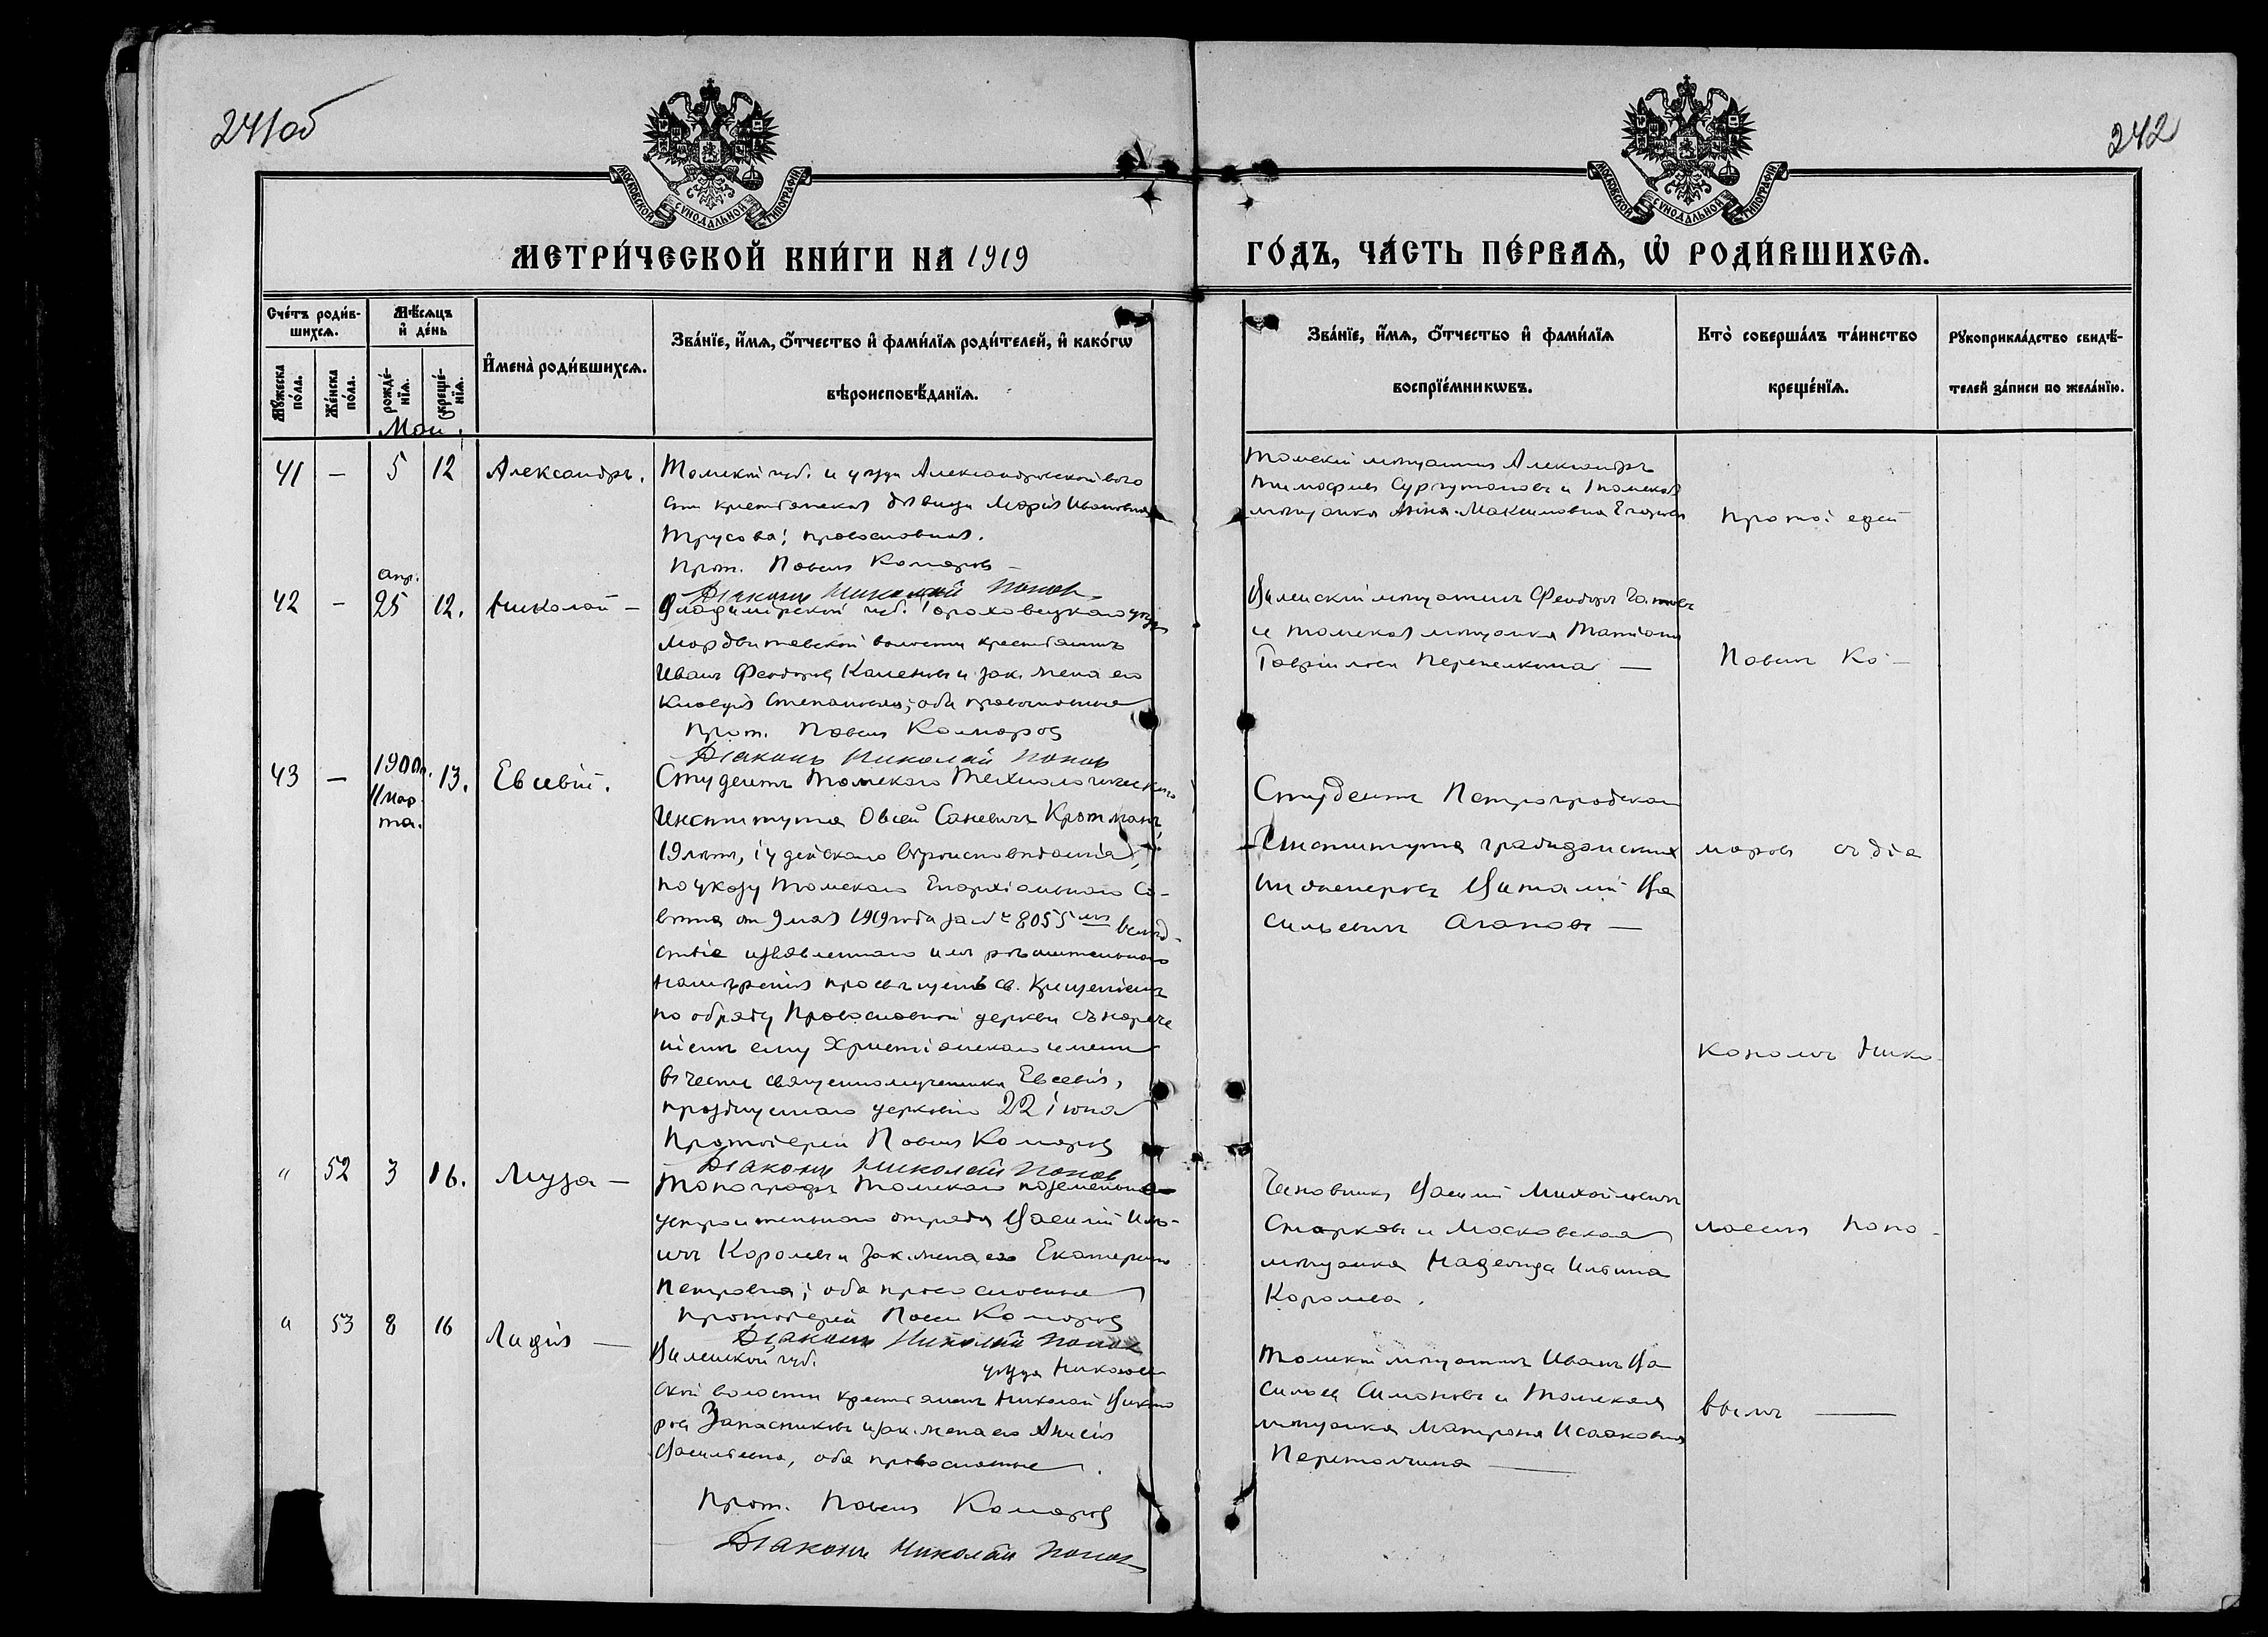 241об
242
МОСКОВСКОЙ СѴНОДАЛЬНОЙ ТИПОГРАФІИ
МОСКОВСКОЙ СѴНОДАЛЬНОЙ ТИПОГРАФІИ
МЕТРИ́ЧЕСКОЙ КНИ́ГИ НА 1919
ГО́ДЪ, ЧА́СТЬ ПЕ́РВАѦ, Ѡ҆ РОДИ́ВШИХСѦ.
Сче́тъ роди́в-
шихсѧ.
Мѣ́сѧцъ
и҆ де́нь
Мꙋ́жеска
по́ла.
Же́нска
по́ла.
рожде́-
нїѧ.
креще́-
нїѧ.
И҆мена̀ роди́вшихсѧ.
Зва́нїе, и҆́мѧ, ѻ҆́тчество и҆ фами́лїѧ роди́телей, и҆ како́гѡ
вѣроисповѣ́данїѧ.
Зва́нїе, и҆́мѧ, ѻ҆́тчество и҆ фами́лїѧ
воспрїе́мникѡвъ.
Кто̀ соверша́лъ та́инство
креще́нїѧ.
Рꙋкоприкла́дство свидѣ́-
телей за́писи по жела́нїю.
Маи.
41 — 5 12 Александръ.
Томской губ. и уѣзда Александровской воло
сти крестьянская дѣвица Марія Ивановна
Трусова; православная.
Прот. Павелъ Комаровъ
Діаконъ Николай Попов
Томскій мѣщанинъ Александръ
Тимофеевъ Сургутановъ и Томская
мѣщанка Анна Максимовна
Протоіерей
42 — апр. 25 12. Николай —
Владимірской губ. Гороховецкаго уѣзда
волости крестьянинъ
Иванъ Феодоровъ и зак. жена его
Клавдія Степановна; оба православные
Прот. Павелъ Комаровъ
Діаконъ Николай Попов
Виленскій мѣщанинъ Феодоръ
и томская мѣщанка Татіана
Гавріилова Перепелкина —
Павелъ Ко-
43 — 1900г. 11 мар-
та. 13. Евсевій.
Студентъ Томскаго Технологическаго
Института Овсей Саневичъ Кротманъ,
19 лѣтъ, іудейскаго вѣроисповѣданія,
по указу Томскаго Епархіальнаго Со-
вѣта от 9 мая 1919 года за № 8055 вслѣд-
ствіе изъявленнаго имъ рѣшительнаго
намѣренія просвѣщенъ св. Крещеніемъ
по обряду Православной церкви съ нарече
ніемъ ему Христіанскаго имени
въ честь священномученика Евсевія,
празднуемаго церковію 22 іюня
Протоіерей Павелъ Комаровъ
Діаконъ Николай Попов
Студентъ Петроградскаго
Института гражданскихъ
инженеровъ Виталій Ва
сильевичъ Агапов —
маровъ съ діа
кономъ Нико-
" 52 3 16. Муза —
Топографъ Томскаго поземельно-
устроительнаго отряда Василій Иль-
ичъ Королевъ и зак. жена его Екатерина
Петровна; оба православные
Протоіерей Павелъ Комаровъ
Діаконъ Николай Попов
Чиновникъ Василій Михайловичъ
Старковъ и Московская
мѣщанка Надежда Ильина
Королева.
лаемъ Попо-
" 53 8 16 Лидія —
Виленской губ. уѣзда Николаев
ской волости крестьянинъ Николай Викто
ровъ Запасниковъ и зак. жена его Анисія
Васильевна, оба православные.
Прот. Павелъ Комаровъ
Діаконъ Николай Попов
Томскій мѣщанинъ Иванъ Ва
сильевъ Симоновъ и Томская
мѣщанка Матрона Исааковна
Перетолчина —
вымъ —